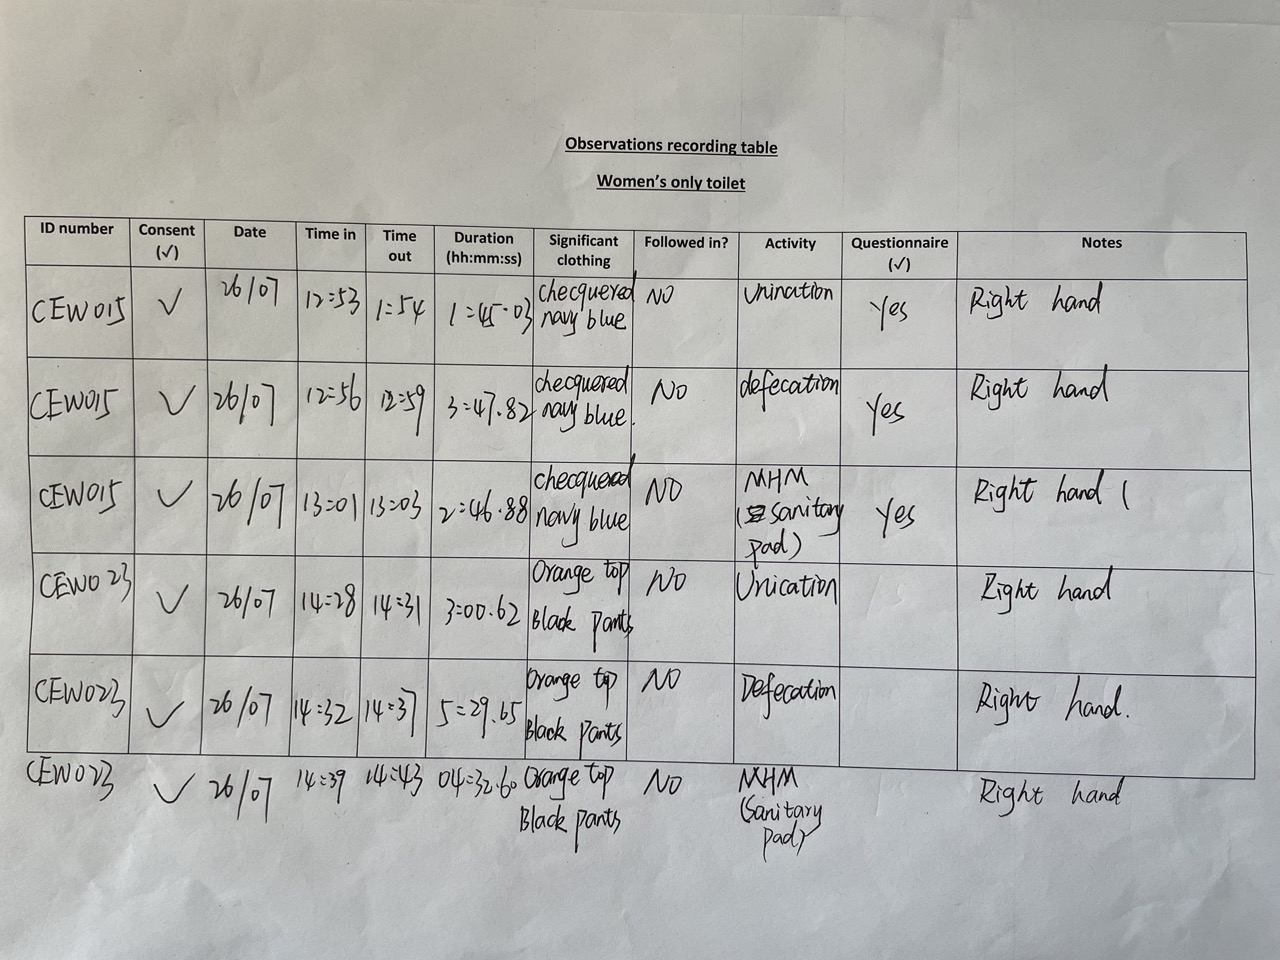 Observations recording table
Women's only toilet
ID number Consent (√) Date Time in Time out Duration (hh:mm:ss) Significant clothing Followed in? Activity Questionnaire (√) Notes
CEW015 ✓ 26/07 12:53 1:54 1:45.03 checquered navy blue NO Urination Yes Right hand
CEW015 ✓ 26/07 12:56 12:59 3:47.82 checquered navy blue. No defecation Yes Right hand
CEW015 ✓ 26/07 13:01 13:03 2:46.88 checquered navy blue NO MHM (sanitary pad) Yes Right hand (
CEW023 ✓ 26/07 14:28 14:31 3:00.62 Orange top Black pants NO Unication Right hand
CEW023 ✓ 26/07 14:32 14:37 5:29.65 Orange top Black pants NO Defecation Right hand.
CEW023 ✓ 26/07 14:39 14:43 04:32.60 Orange top Black pants No MHM (Sanitary pad) Right hand